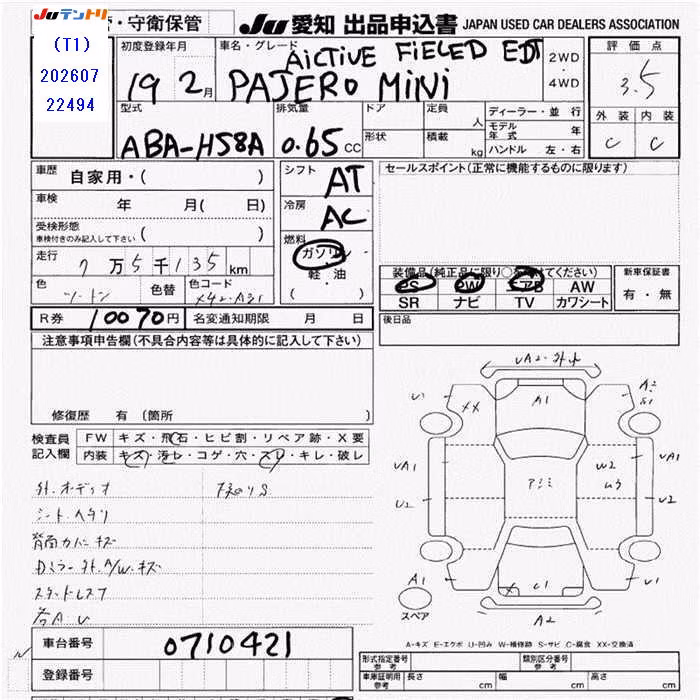 Juテントリ ・守衛保管 Ju 愛知 出品申込書 JAPAN USED CAR DEALERS ASSOCIATION
(T1)
202607
22494
初度登録年月 19 2月
車名・グレード AiCTiVE FiELED EDT
PAJERO MiNi
2WD・4WD
評価点 3.5
外装 内装
C C
型式 ABA-H58A
排気量 0.65 CC
ドア 定員 人
形状 積載 kg
ディーラー・並行
モデル年式 年
ハンドル 左・右
車歴 自家用・( )
車検 年 月( 日)
受検形態
車検付きのみ記入して下さい ( )
走行 7万5千135km
色 ツートン 色替 色コード X42-A31
シフト AT
冷房 AC
燃料 ガソリン
軽・油
( )
セールスポイント(正常に機能するものに限ります)
装備品(純正品に限り○を付けてください)
PS PW エアB AW
SR ナビ TV カワシート
新車保証書
有・無
R券 10070円 名変通知期限 月 日
後日品
注意事項申告欄(不具合内容等は具体的に記入して下さい)
修復歴 有 (箇所 )
検査員記入欄
FW キズ・飛石・ヒビ割・リペア跡・X要
内装 キズ・汚レ・コゲ・穴・スレ・キレ・破レ
外.オーディオ
シートヘタリ
背面カバーキズ
Dミラー外.A/W.キズ
スタッドレス7
各A U
XX A1 A2 S1
UA1 UA1
U2 U2
W2
アミ
A1 X C1 U1
A2
スペア
A-キズ E-エクボ U-凹み W-補修跡 S-サビ C-腐食 XX-交換済
車台番号 0710421
登録番号
形式指定番号 参考 類別区分番号 参考
車庫証明用 参考 長さ cm 幅 cm 高さ cm